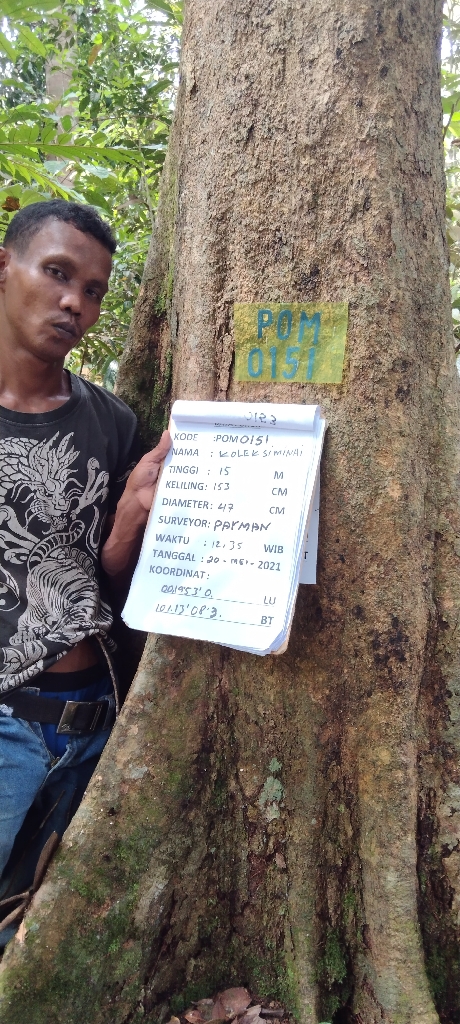 POM
0151
KODE :POM0151
NAMA : KOLEK SIMINAI
TINGGI : 15 M
KELILING: 153 CM
DIAMETER: 47 CM
SURVEYOR: PAYMAN
WAKTU : 12,35 WIB
TANGGAL : 20 - MEI - 2021
KOORDINAT:
00.19'53'0. LU
101.13'08'3. BT